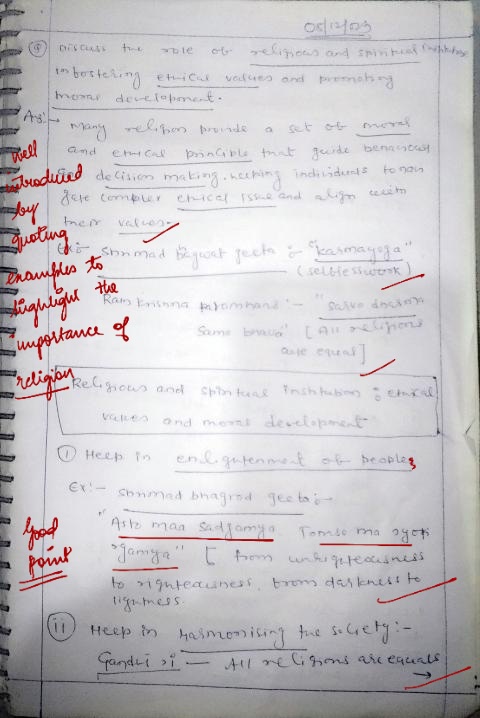 05/12/23
Q Discuss the role of religious and spiritual institution
in fostering ethical values and promoting
moral development.
Ans:→ Many religion provide a set of moral
and ethical principle that guide behaviour
decision making, helping individuals to navi
gate complex ethical issue and align with
their values.
Ex:- Shrimad Bagwat geeta :- "karmayoga"
(selflesswork)
Ram krishna paramhans :- "sarva dharma
Sama bhava" [All religions
are equas]
well
introduced
by
quoting
examples to
highlight the
importance of
religion
Religious and spiritual institution : ethical
values and moral development
(i) Heep in enlightenment of people;
Ex:- Shrimad bhagvad geeta :-
"Asto maa sadgamya. Tomso ma jyoti
rgamya" [ from unrighteousness
to righteousness, from darkness to
lightness.
Good
point
(ii) Heep in harmonising the society:-
Gandhi ji — All religions are equals